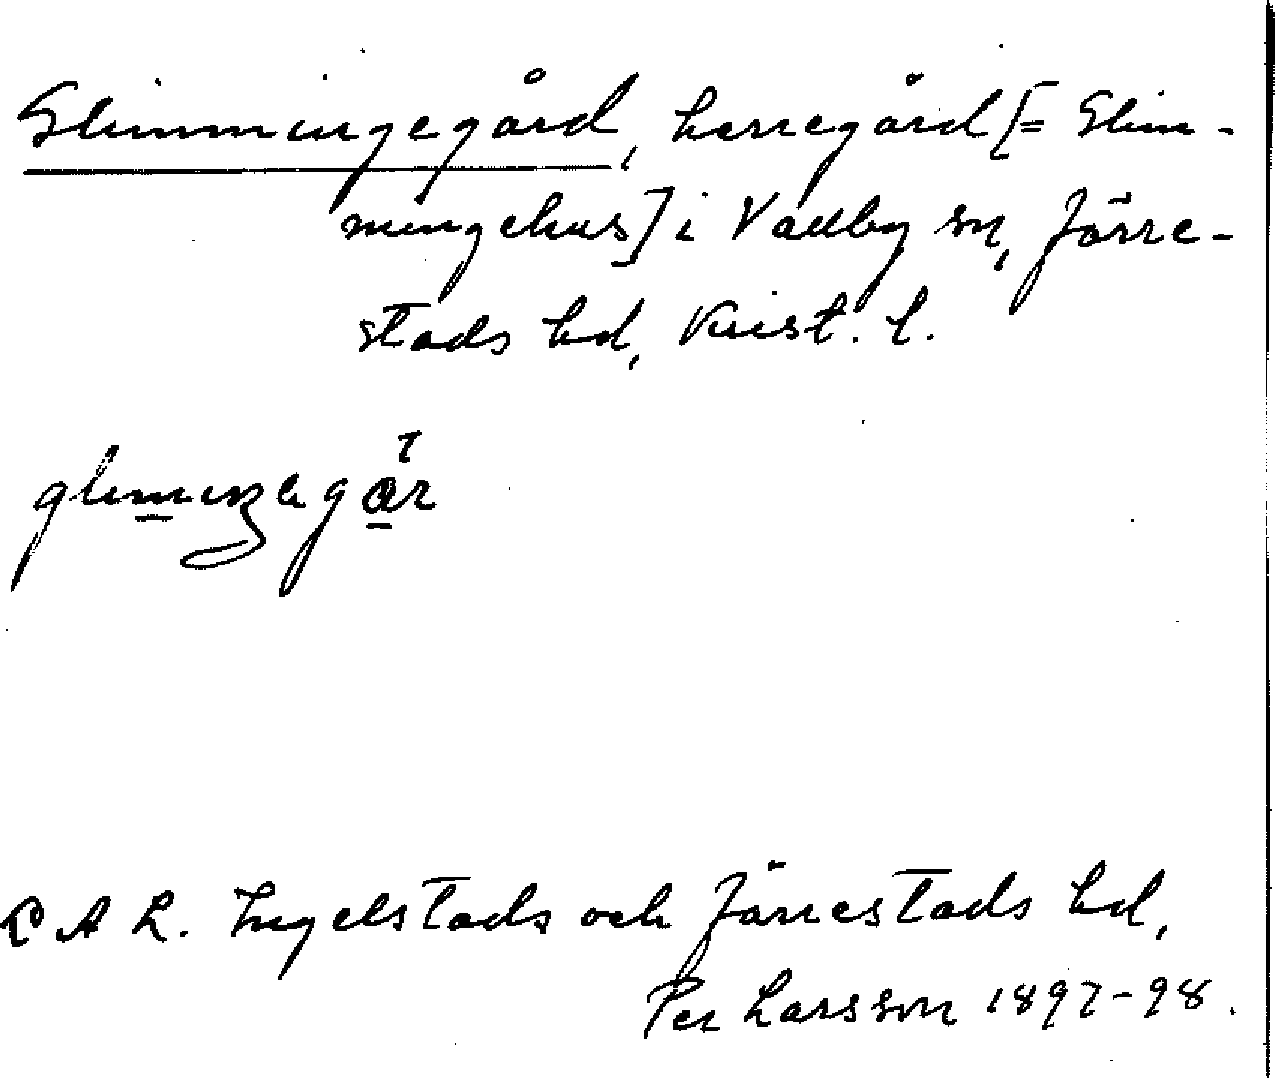 Glimmingegård, herregård [= Glim-
mingehus] i Vallby sn, Järre-
stads hd, Krist. l.
R A L. Ingelstads och Järrestads hd,
Per Larsson 1897-98.